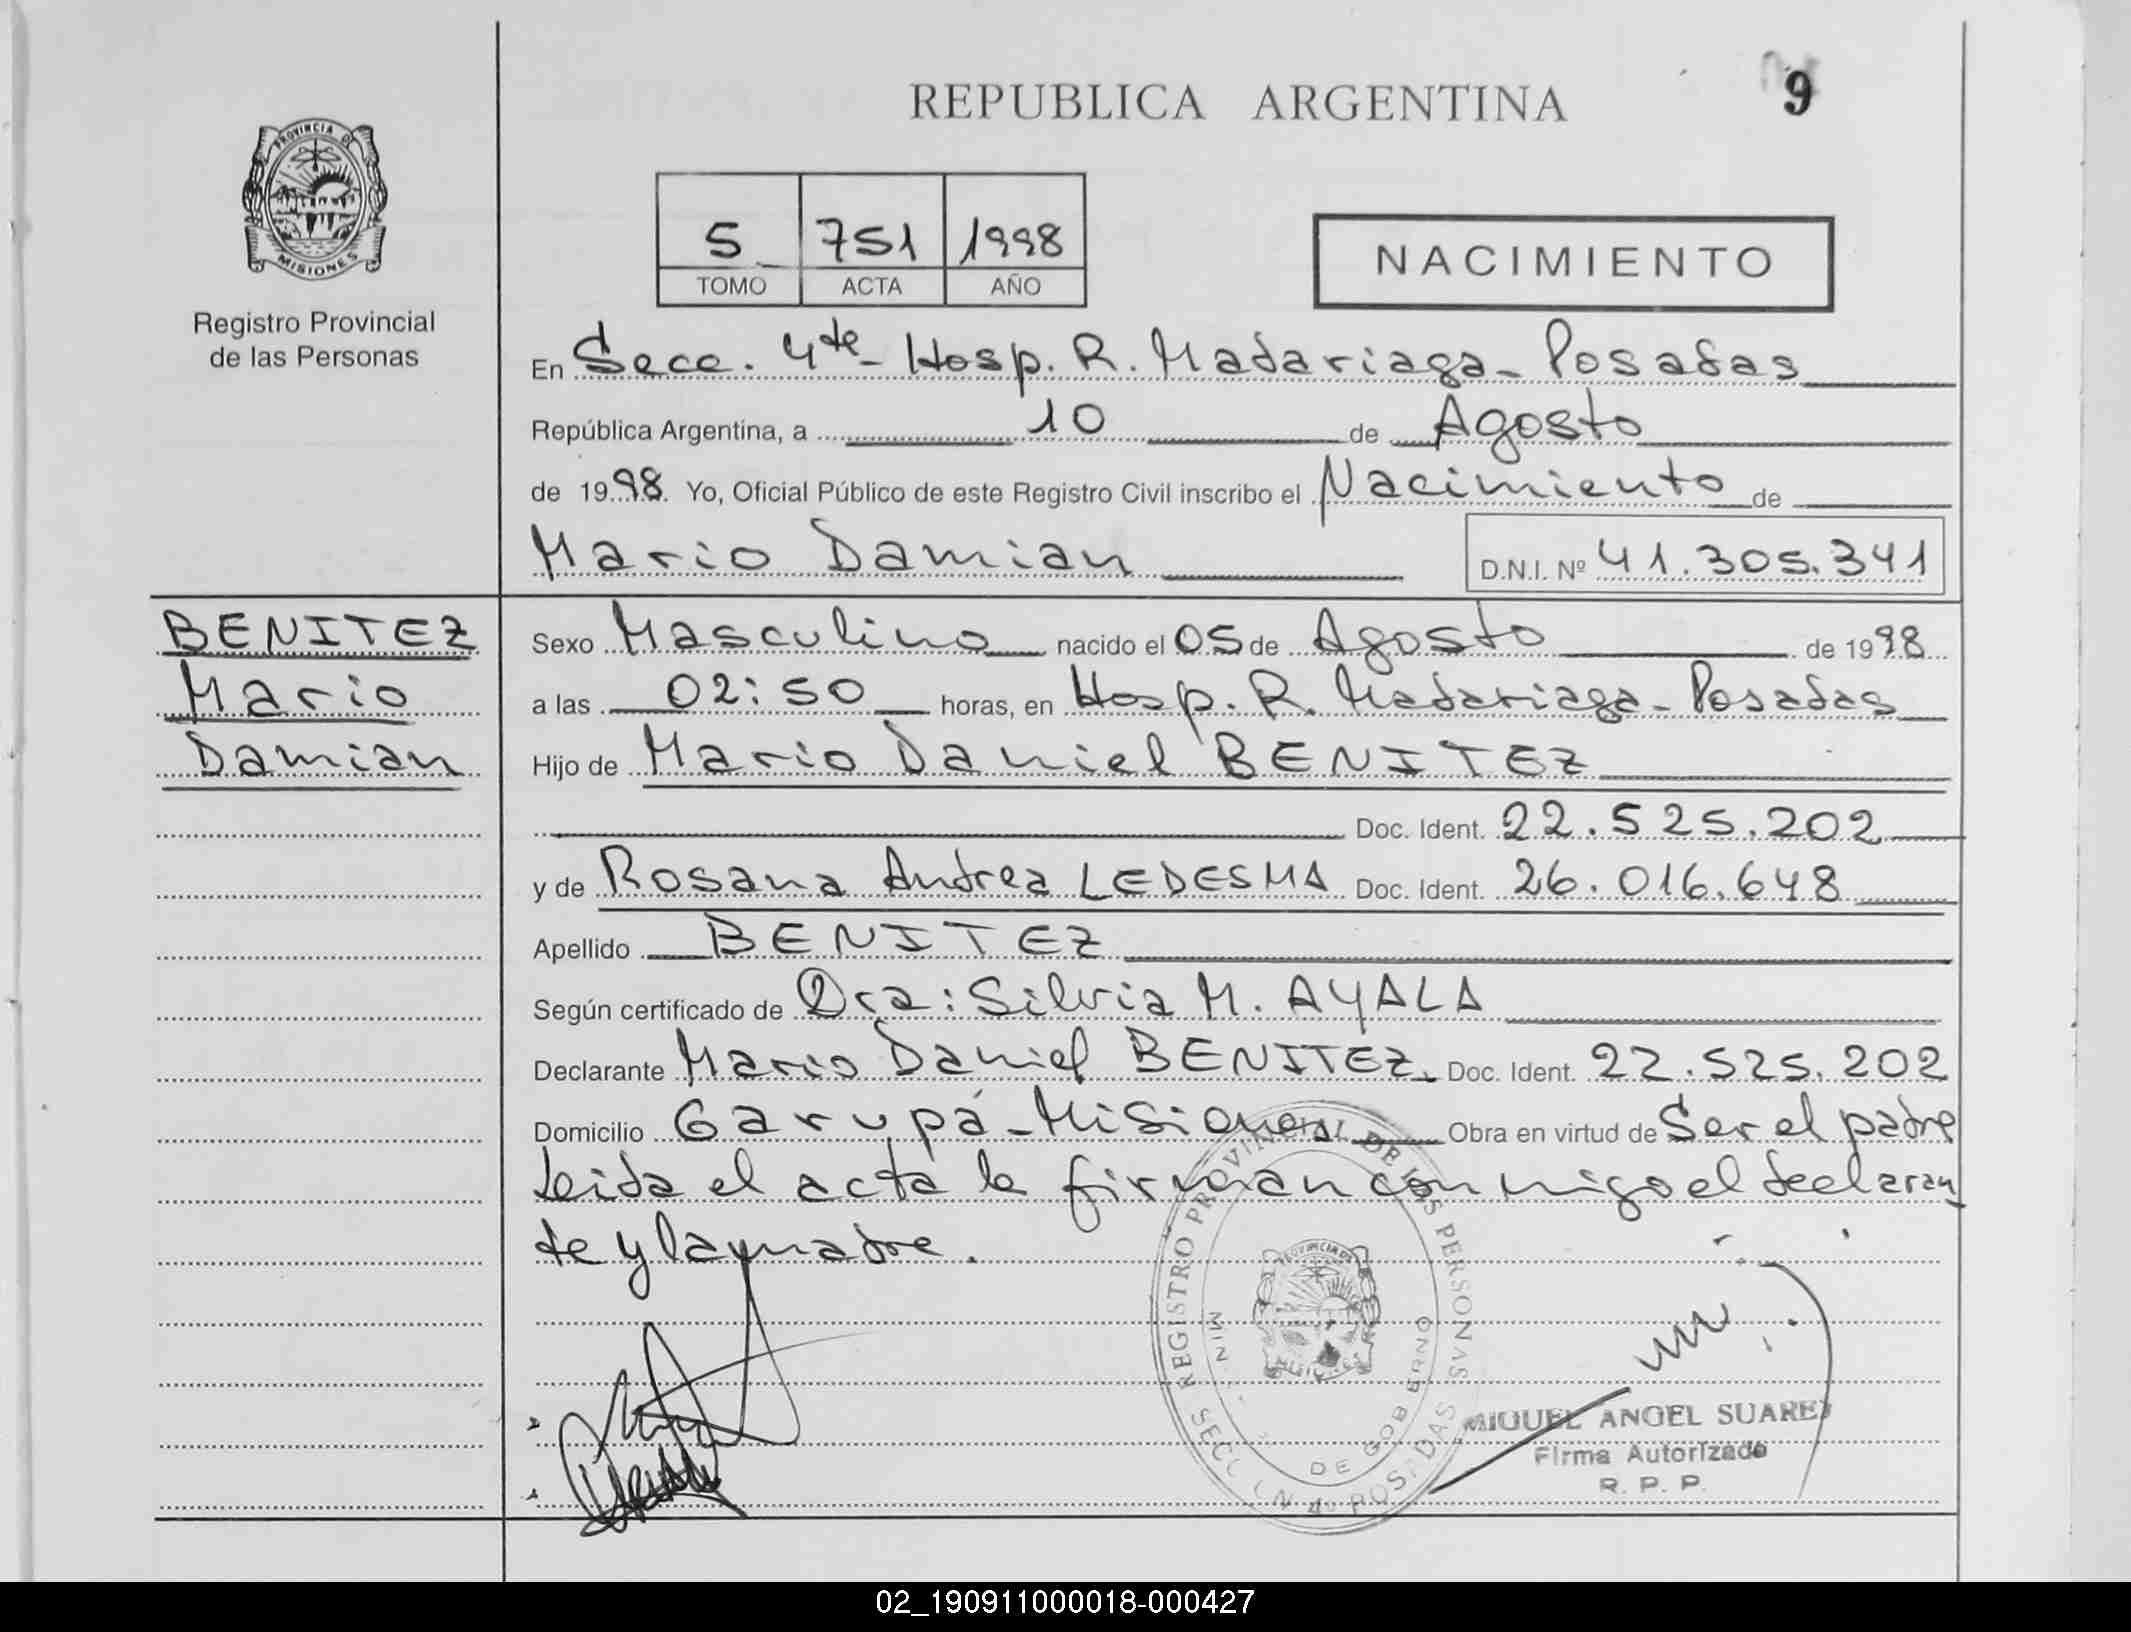 REPUBLICA ARGENTINA
9
PROVINCIA DE
MISIONES
Registro Provincial
de las Personas
5 751 1998
TOMO ACTA AÑO
NACIMIENTO
En Secc. 4te - Hosp. R. Madariaga - Posadas
República Argentina, a 10 de Agosto
de 1998. Yo, Oficial Público de este Registro Civil inscribo el Nacimiento de
Mario Damian D.N.I. Nº 41.305.341
BENITEZ
Mario
Damian
Sexo Masculino nacido el 05 de Agosto de 1998
a las 02:50 horas, en Hosp. R. Madariaga - Posadas
Hijo de Mario Daniel BENITEZ
Doc. Ident. 22.525.202
y de Rosana Andrea LEDESMA Doc. Ident. 26.016.648
Apellido BENITEZ
Según certificado de Dra: Silvia M. AYALA
Declarante Mario Daniel BENITEZ. Doc. Ident. 22.525.202
Domicilio Garupá - Misiones Obra en virtud de Ser el padre
Leida el acta la firman conmigo el declaran
te y la madre.
REGISTRO PROVINCIAL DE LAS PERSONAS
DE GOBIERNO
POSADAS
MIGUEL ANGEL SUAREZ
Firma Autorizada
R. P. P.
02_190911000018-000427